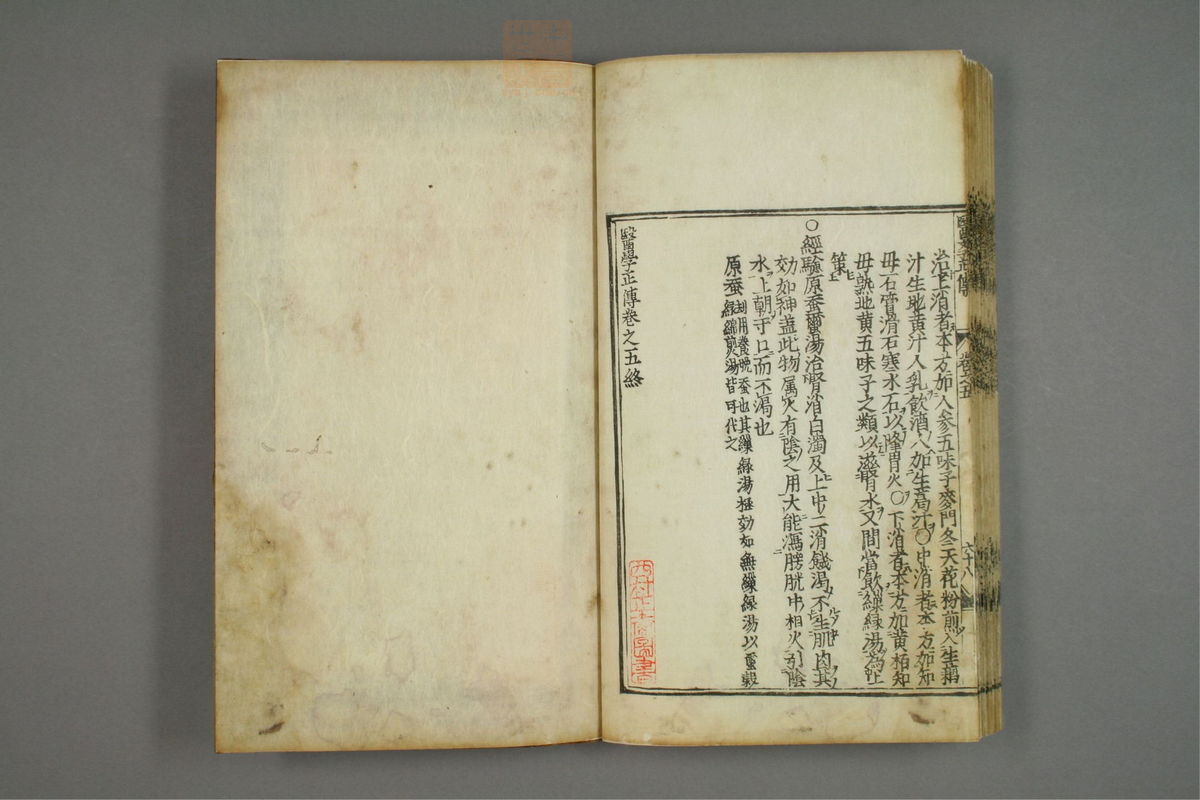 醫學正傳 卷之五 六十八
治上消者本方加人參五味子麥門冬天花粉煎入生藕
汁生地黄汁人乳飲酒人加生葛汁〇中消者本方加知
母石膏滑石寒水石以降胃火〇下消者本方加黄栢知
母熟地黄五味子之類以滋腎水又間當飲繰絲湯為上
策
〇經驗原蚕蠒湯治腎消白濁及上中二消饑渴不生肌肉其
効如神盖此物属火有陰之用大能瀉膀胱中相火引陰
水上朝于口而不渴也
原蚕即用養晩蚕也其繰絲湯極効如無繰絲湯以蠒榖
絲綿煎湯皆可代之
醫學正傳卷之五終